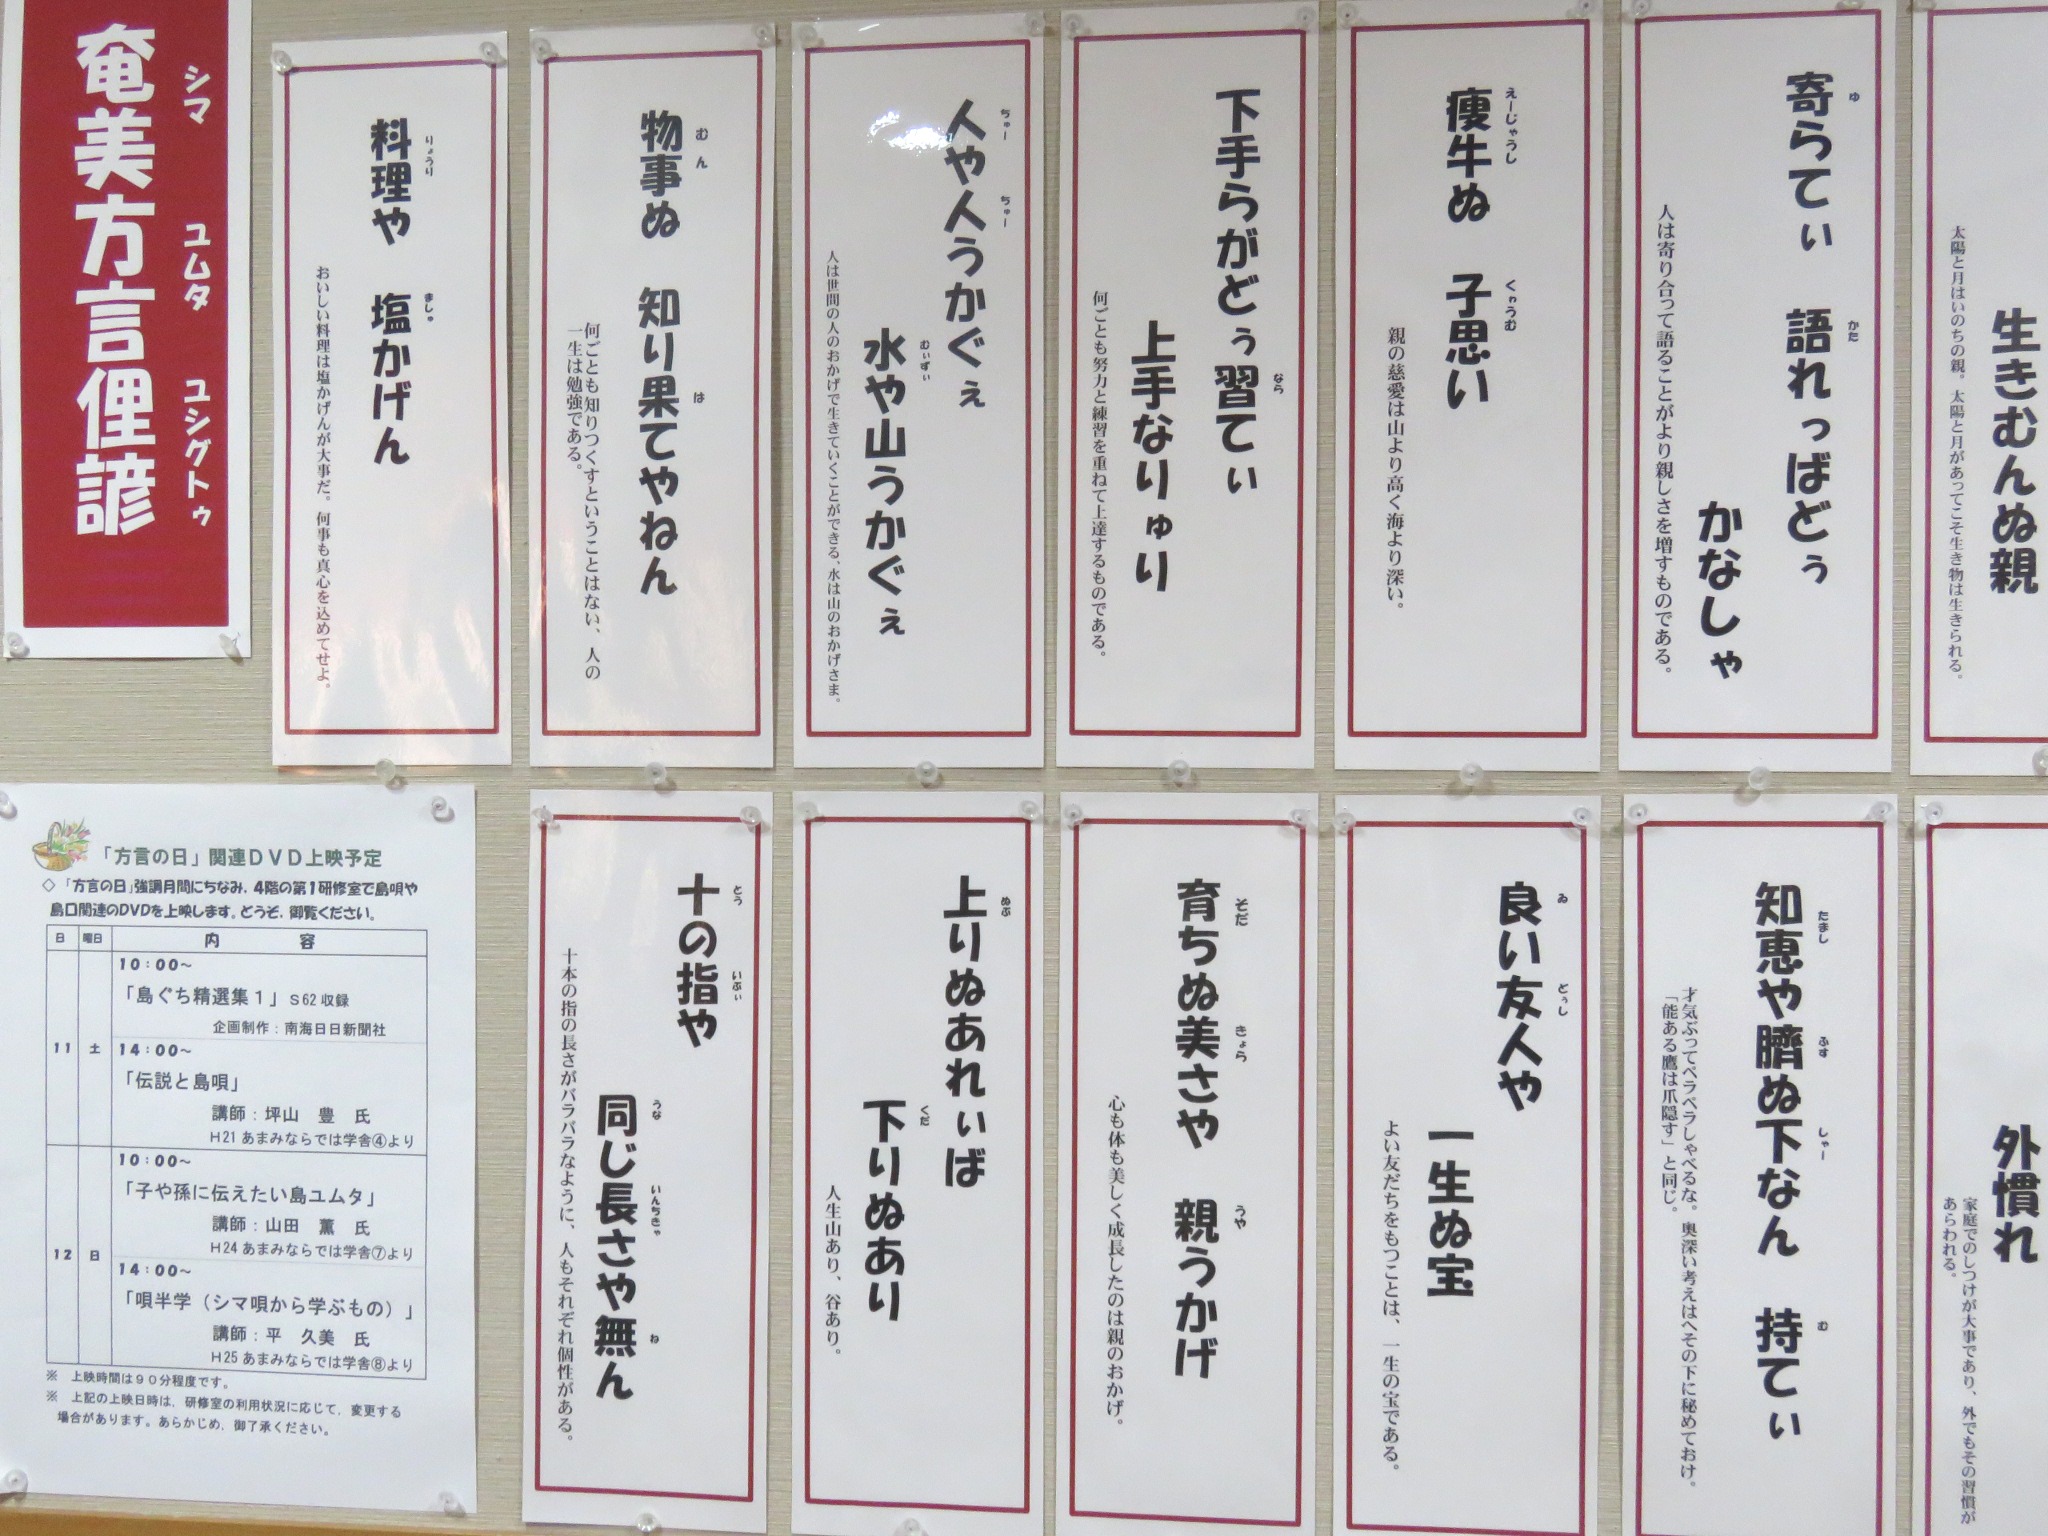 奄美方言俚諺
シマ ユムタ ユシグトゥ
生きむんぬ親
太陽と月はいのちの親。太陽と月があってこそ生き物は生きられる。
寄らてぃ 語れっばどぅ
ゆ かた
かなしゃ
人は寄り合って語ることがより親しさを増すものである。
痩牛ぬ 子思い
えーじゃうし くゎうむ
親の慈愛は山より高く海より深い。
下手らがどぅ習てぃ
なら
上手なりゅり
何ごとも努力と練習を重ねて上達するものである。
人や人うかぐぇ
ちゅー ちゅー
水や山うかぐぇ
むぃずぃ
人は世間の人のおかげで生きていくことができる、水は山のおかげさま。
物事ぬ 知り果てやねん
むん は
何ごとも知りつくすということはない、人の
一生は勉強である。
料理や 塩かげん
りょうり ましゅ
おいしい料理は塩かげんが大事だ。何事も真心を込めてせよ。
外慣れ
家庭でのしつけが大事であり、外でもその習慣が
あらわれる。
知恵や臍ぬ下なん 持てぃ
たまし ふす しゃー む
才気ぶってペラペラしゃべるな。奥深い考えはへその下に秘めておけ。
「能ある鷹は爪隠す」と同じ。
良い友人や
ゐ どぅし
一生ぬ宝
よい友だちをもつことは、一生の宝である。
育ちぬ美さや 親うかげ
そだ きょら うや
心も体も美しく成長したのは親のおかげ。
上りぬあれぃば
ぬぶ
下りぬあり
くだ
人生山あり、谷あり。
十の指や
とう いぶぃ
同じ長さや無ん
うな いんちきゃ ね
十本の指の長さがバラバラなように、人もそれぞれ個性がある。
「方言の日」関連DVD上映予定
◇「方言の日」強調月間にちなみ、4階の第1研修室で島唄や
島口関連のDVDを上映します。どうぞ、御覧ください。
日 曜日 内 容
11 土
10:00~
「島ぐち精選集1」S62収録
企画制作:南海日日新聞社
14:00~
「伝説と島唄」
講師:坪山 豊 氏
H21あまみならでは学舎④より
12 日
10:00~
「子や孫に伝えたい島ユムタ」
講師:山田 薫 氏
H24あまみならでは学舎⑦より
14:00~
「唄半学(シマ唄から学ぶもの)」
講師:平 久美 氏
H25あまみならでは学舎⑧より
※ 上映時間は90分程度です。
※ 上記の上映日時は、研修室の利用状況に応じて、変更する
場合があります。あらかじめ、御了承ください。